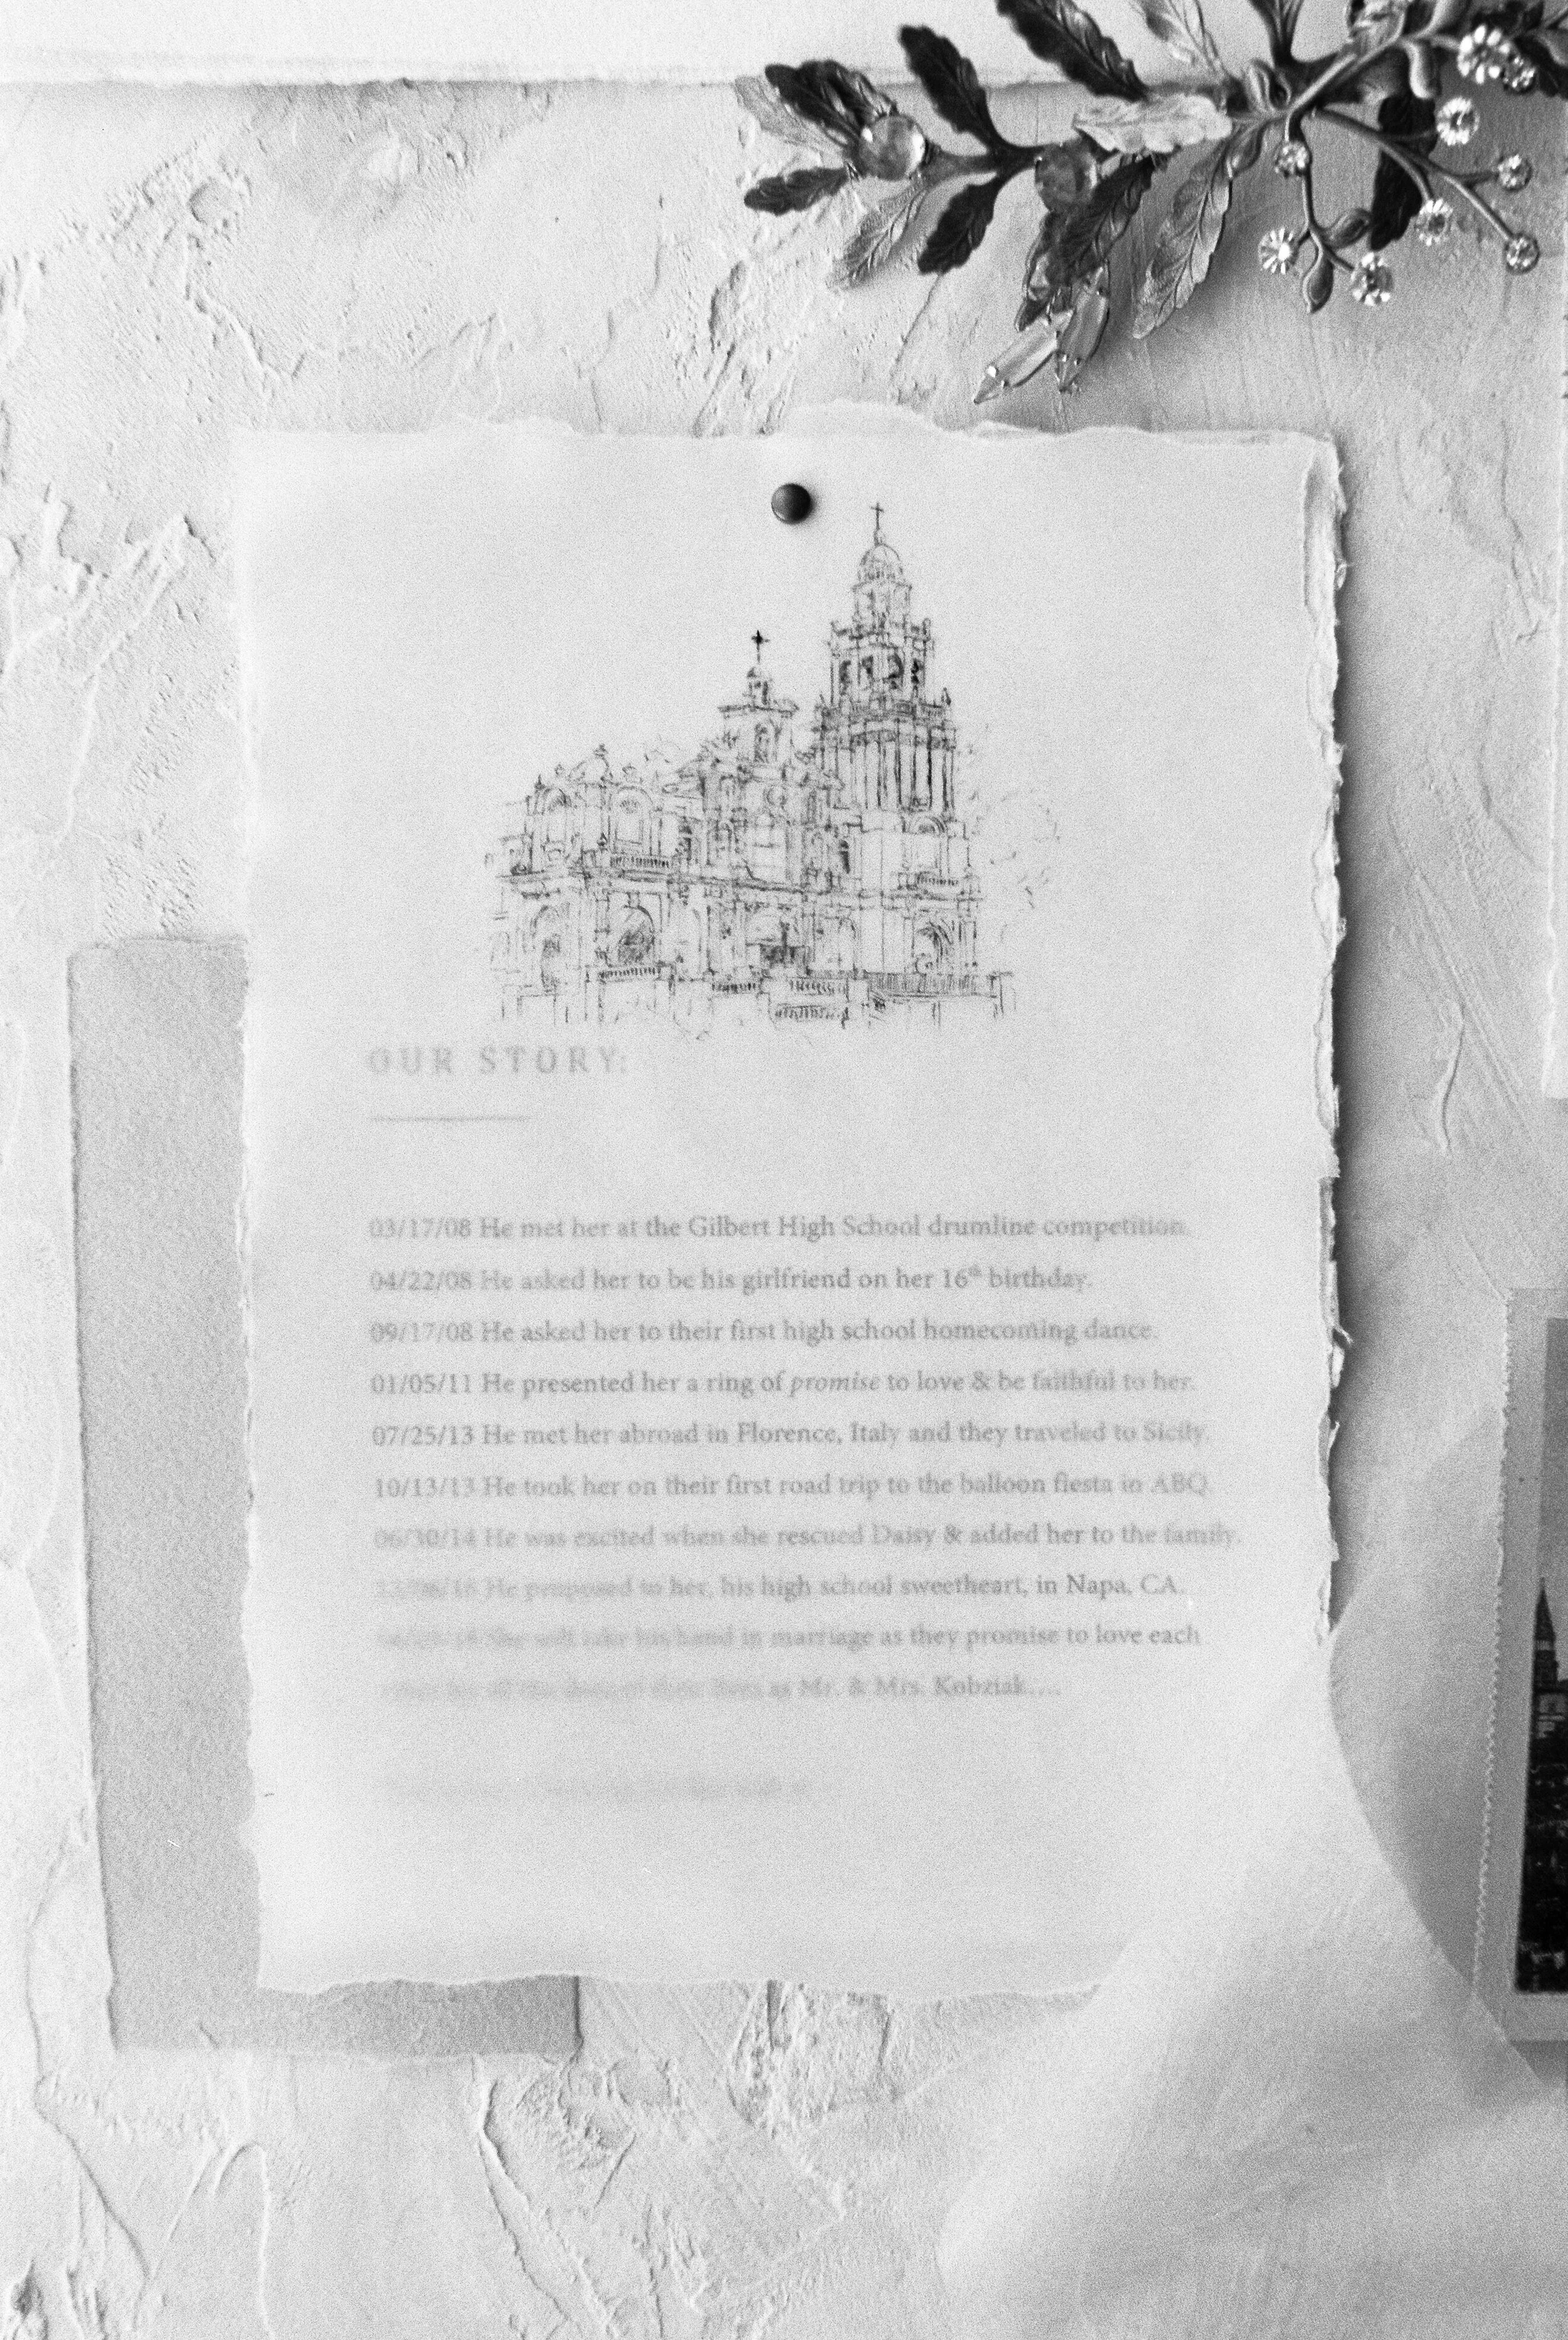 OUR STORY:
03/17/08 He met her at the Gilbert High School drumline competition.
04/22/08 He asked her to be his girlfriend on her 16th birthday.
09/17/08 He asked her to their first high school homecoming dance.
01/05/11 He presented her a ring of promise to love & be faithful to her.
07/25/13 He met her abroad in Florence, Italy and they traveled to Sicily.
10/13/13 He took her on their first road trip to the balloon fiesta in ABQ.
06/30/14 He was excited when she rescued Daisy & added her to the family.
He proposed to her, his high school sweetheart, in Napa, CA.
She will take his hand in marriage as they promise to love each
lives as Mr. & Mrs. Kobziak....